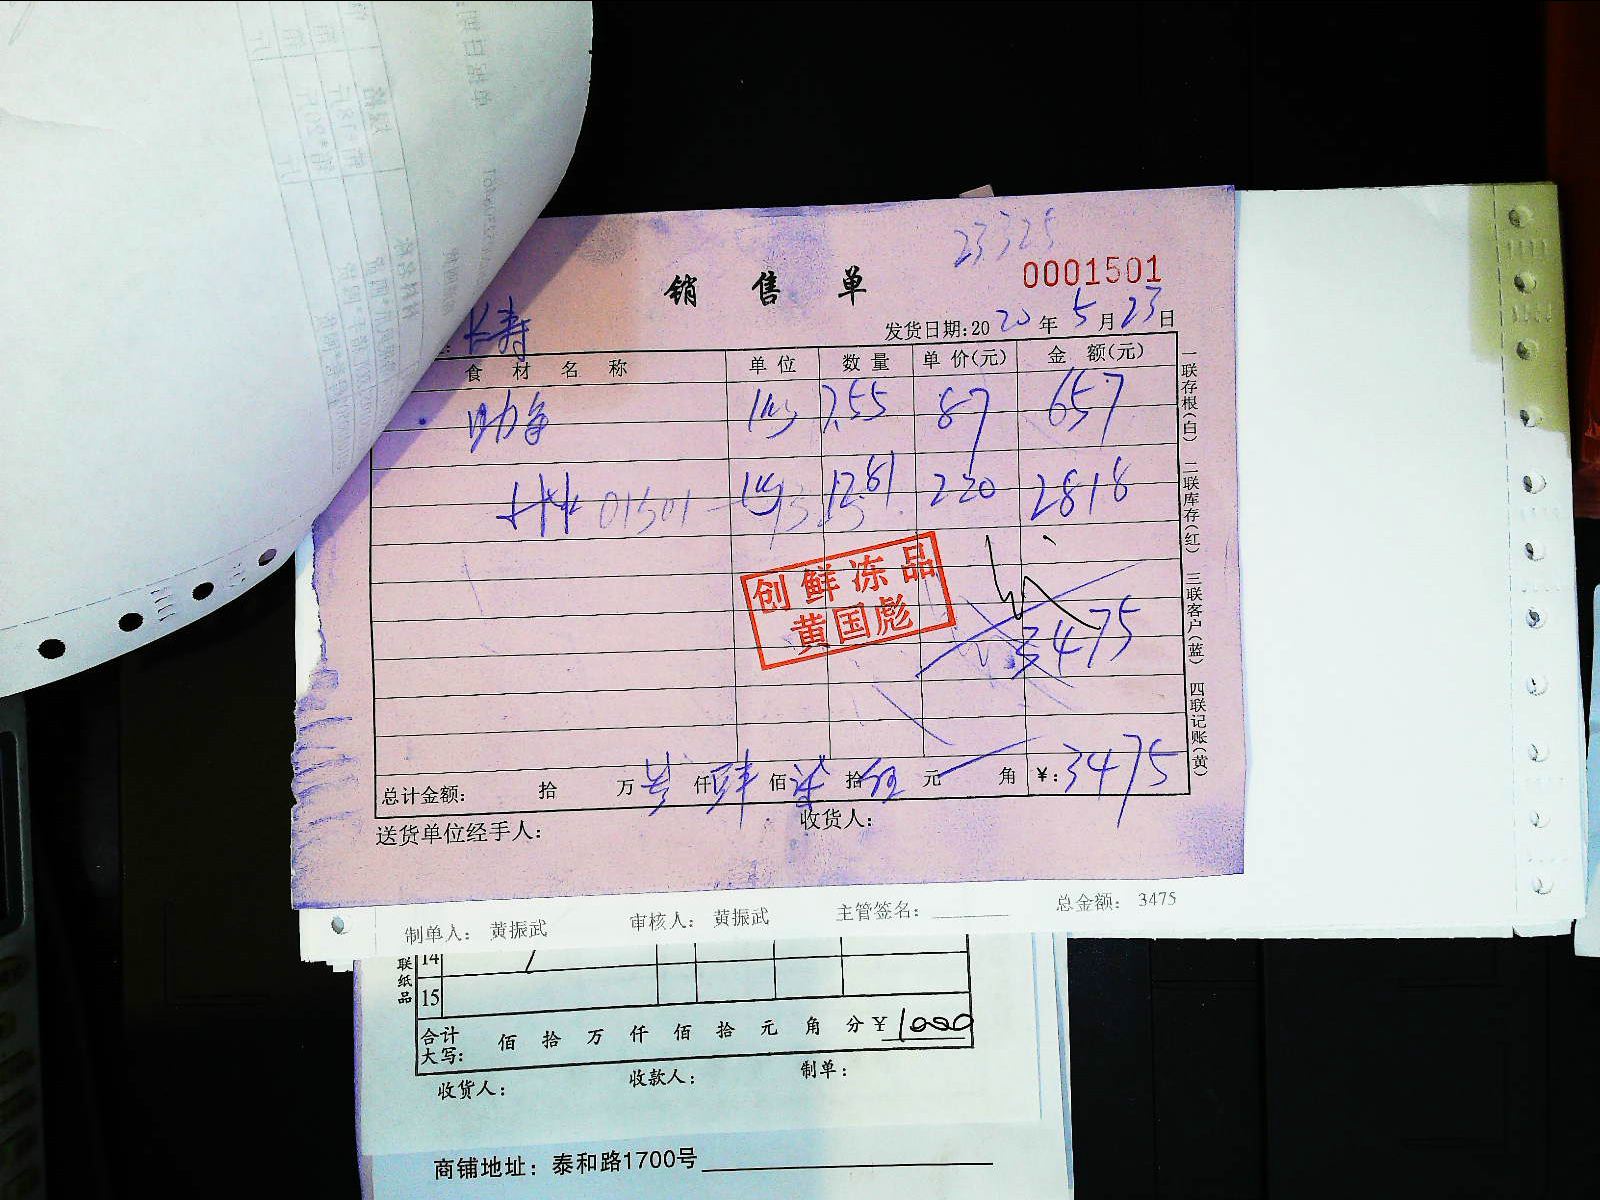 23325
销售单
0001501
长寿
发货日期:2020年5月23日
食材名称 单位 数量 单价(元) 金额(元)
kg 7.55 87 657
01501 kg 12.81 220 2818
创鲜冻品
黄国彪
3475
总计金额: 拾 万 叁 仟 肆 佰 柒 拾 伍 元 角 ¥:3475
送货单位经手人: 收货人:
一联存根(白) 二联库存(红) 三联客户(蓝) 四联记账(黄)
制单人: 黄振武 审核人: 黄振武 主管签名: 总金额: 3475
联纸品
14
15
合计大写: 佰 拾 万 仟 佰 拾 元 角 分 ¥1000
收货人: 收款人: 制单:
商铺地址: 泰和路1700号